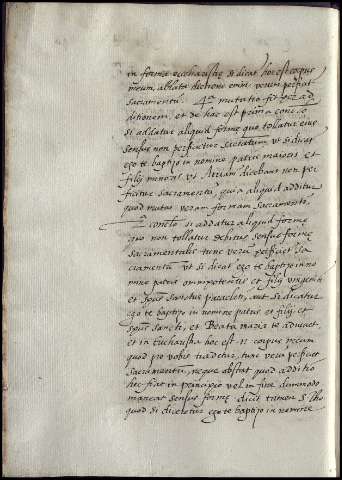 in forma eucharistiæ et dicat hoc est corpus
meum, ablata dictione enim verum perficiat
sacramentu. 4ª mutatio fit per ad
ditionem, et de hac est prima concl.o
si addatur aliquid forme quo tollatur eius
sensus non perficietur ut si dicat
ego te baptizo in nomine patris maioris et
filij minoris ut Ariani dicebant non per
ficitur sacramentu, quia aliquid additur
quod mutat veram formam sacramenti.
2ª concl.o si addatur aliquid forme
quo non tollatur debitus sensus forme
sacramentalis tunc veru perficiet sa
cramentu ut si dicat ego te baptizo in no
mine patris omnipotentis et filij unigeniti
et spus sancti paracleti, aut si dicatur
ego te baptizo in nomine patris et filij et
spus sancti, et Beata maria te adiuvet,
et in Eucharistia hoc est n. corpus meum
quod pro vobis tradetur, tunc veru perficiet
sacramentu, neque obstat quod additio
hec fiat in principio vel in fine dummodo
maneat sensus forme dicit tamen S. Tho.
quod si diceretur ego te baptizo in nomine